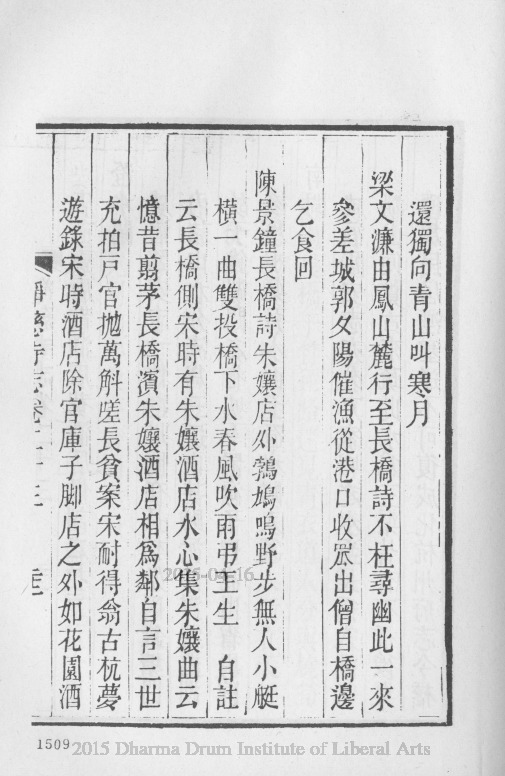 還獨向青山叫寒月
梁文濂由鳳山麓行至長橋詩不枉尋幽此一來
參差城郭夕陽催漁從港口收罛出僧自橋邊
乞食回
陳景鐘長橋詩朱孃店外鵓鳩鳴野步無人小艇
橫一曲雙投橋下水春風吹雨弔王生　自註
云長橋側宋時有朱孃酒店水心集朱孃曲云
憶昔翦茅長橋濱朱孃酒店相爲鄰自言三世
充拍戸官抛萬斛嗟長貧案宋耐得翁古杭夢
遊錄宋時酒店除官庫子脚店之外如花園酒
淨慈寺志卷二十三
2015-04-16
1509
2015 Dharma Drum Institute of Liberal Arts